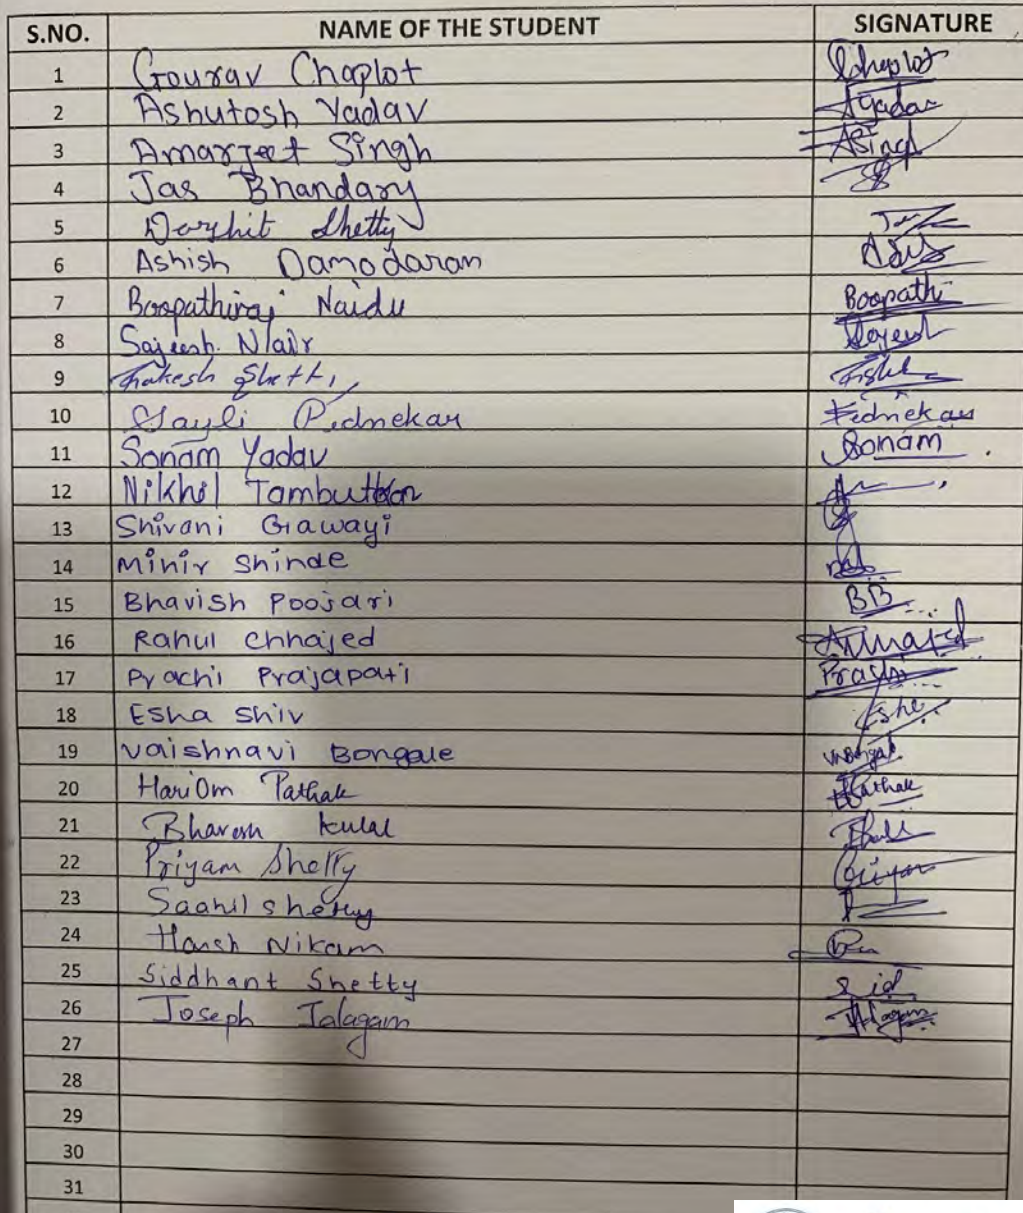 S.NO. NAME OF THE STUDENT SIGNATURE
1 Gourav Chaplot Chaplot
2 Ashutosh Yadav AYadav
3 Amarjeet Singh ASingh
4 Jas Bhandary
5 Darshit Shetty
6 Ashish Damodaran
7 Boopathiraj Naidu Boopathi
8 Sajeesh Nair Sajeesh
9 Shetti
10 Sayli Pednekar Pednekar
11 Sonam Yadav Sonam
12 Nikhil
13 Shivani Gawayi
14 Minir Shinde
15 Bhavish Poojari BB
16 Rahul Chhajed
17 Prachi Prajapati Prachi
18 Esha Shiv Esha
19 Vaishnavi Bongale
20 HariOm Pathak Pathak
21 Bhavesh Kulal
22 Priyam Shetty Priyam
23 Saahil Shetty
24 Harsh Nikam
25 Siddhant Shetty Sid
26 Joseph Jalagam Jalagam
27
28
29
30
31